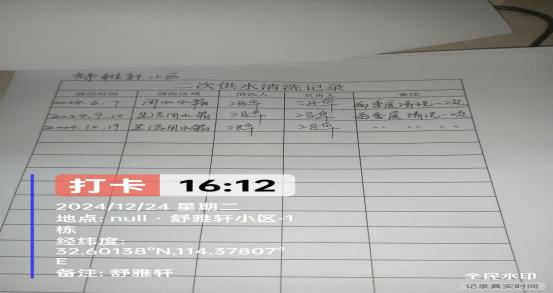 舒雅轩小区
二次供水清洗记录
清洗时间 清洗区域 清洗人 负责人 备注
2024.6.7 用水水箱 两季度清洗一次
2024.9.10 生活用水箱 两季度清洗一次
2024.12.19 生活用水箱
打卡 16:12
2024/12/24 星期二
地点: null · 舒雅轩小区-1
栋
经纬度:
32.60138°N,114.37807°
E
备注: 舒雅轩
全民水印
记录真实时间